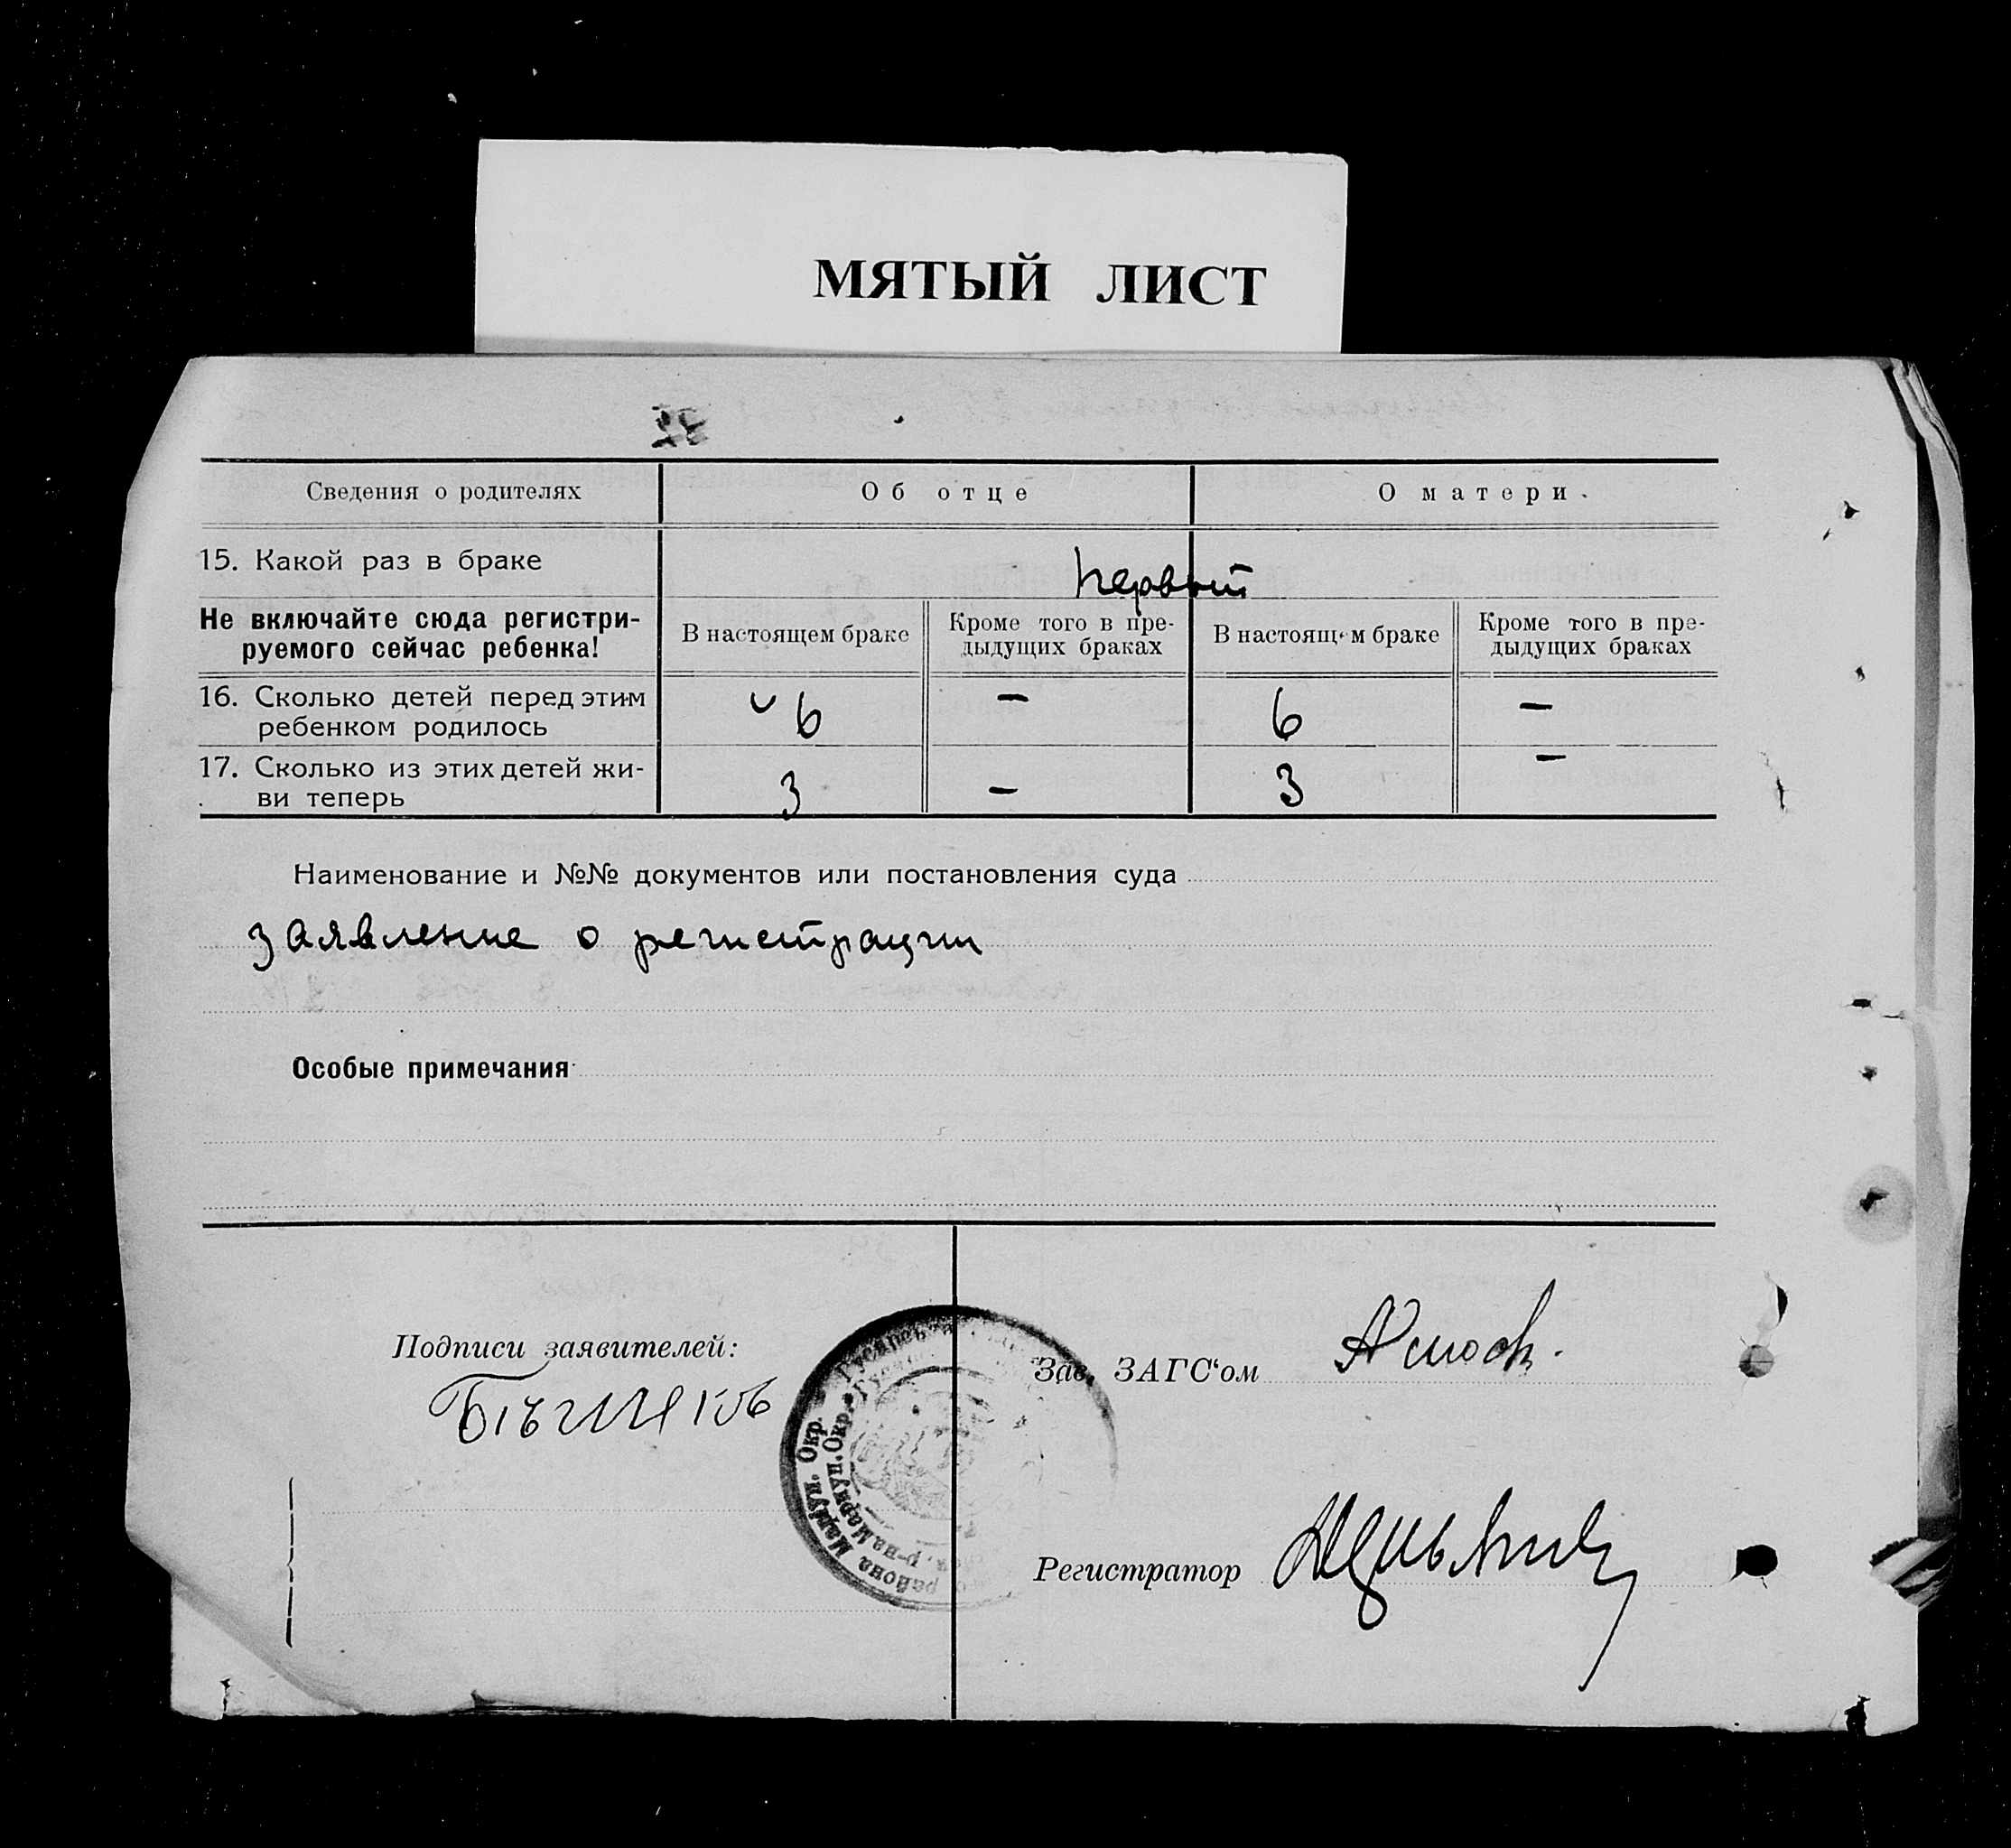 МЯТЫЙ ЛИСТ
Сведения о родителях
Об отце
О матери.
15. Какой раз в браке
первый
Не включайте сюда регистри-
руемого сейчас ребенка!
В настоящем браке
Кроме того в пре-
дыдущих браках
В настоящем браке
Кроме того в пре-
дыдущих браках
16. Сколько детей перед этим
ребенком родилось
6
–
6
–
17. Сколько из этих детей жи-
ви теперь
3
–
3
–
Наименование и №№ документов или постановления суда
заявление о регистрации
Особые примечания
Подписи заявителей:
Зав. ЗАГС‘ом
Регистратор
района Мариуп. Окр.
р-на Мариуп. Окр.